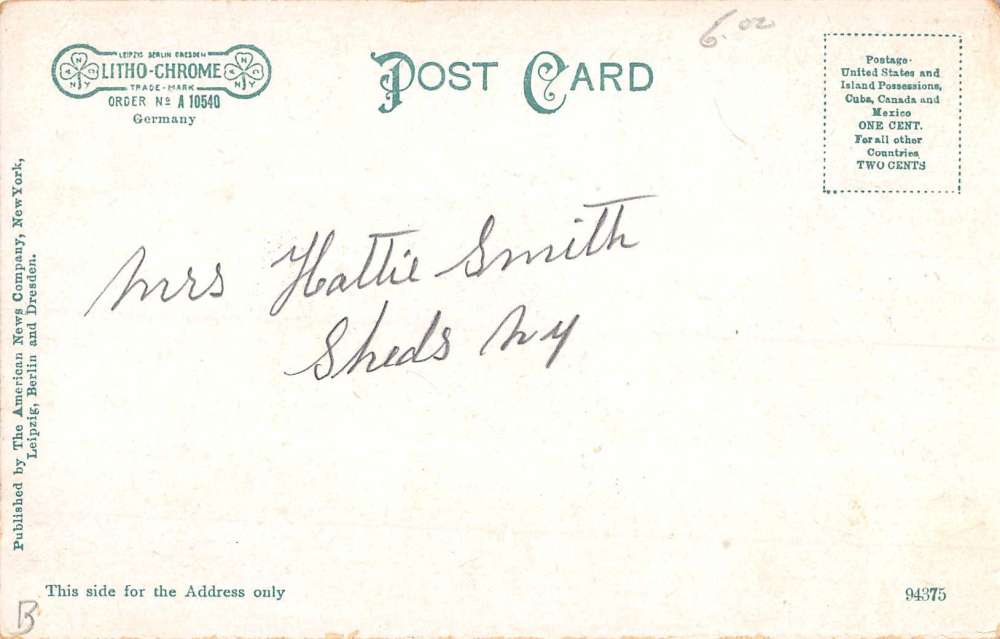 LEIPZIG BERLIN DRESDEN
LITHO-CHROME
TRADE-MARK
ORDER Nº A 10540
Germany
POST CARD
6.00
Postage-
United States and
Island Possessions,
Cuba, Canada and
Mexico
ONE CENT.
For all other
Countries
TWO CENTS
Mrs Hattie Smith
Sheds NY
Published by The American News Company, New York,
Leipzig, Berlin and Dresden.
This side for the Address only
94375
B